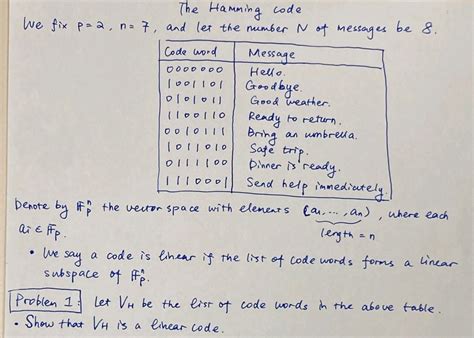 The Hamming code
We fix p=2, n=7, and let the number N of messages be 8.
Code word Message
0000000 Hello.
1001101 Goodbye.
0101011 Good weather.
1100110 Ready to return.
0010111 Bring an umbrella.
1011010 Safe trip.
0111100 Dinner is ready.
1110001 Send help immediately.
Denote by 𝔽ₚⁿ the vector space with elements (a₁, ..., aₙ), where each
length = n
aᵢ ∈ 𝔽ₚ.
• We say a code is linear if the list of code words forms a linear
subspace of 𝔽ₚⁿ.
Problem 1: Let V_H be the list of code words in the above table.
• Show that V_H is a linear code.